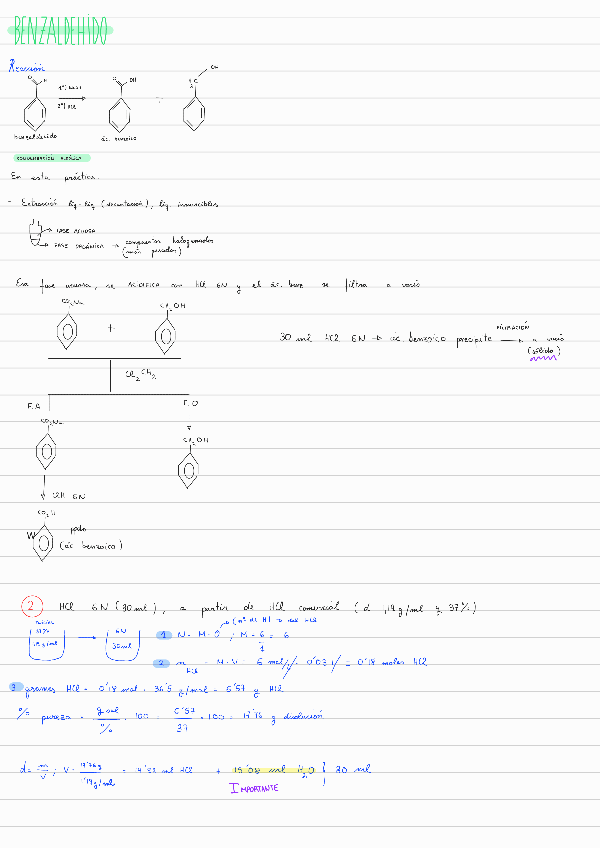 BENZALDEHÍDO
Reacción
O H
1º) NaOH
2º) HCl
O OH
benzaldehído
ác. benzoico
CONDENSACIÓN ALDÓLICA
En esta práctica:
- Extracción líq-líq (decantación), líq. inmiscibles
→ FASE ACUOSA
→ FASE ORGÁNICA → compuestos halogenados
(más pesados)
En fase acuosa, se ACIDIFICA con HCl 6N y el ác. benz se filtra a vacío
CO2Na
CH2OH
+
30 ml HCl 6N → ác. benzoico precipita
FILTRACIÓN
→ a vacío
(sólido)
CH2Cl2
F.A
F.O
CO2Na
CH2OH
ClH 6N
CO2H
(ác. benzoico)
2 HCl 6N (30ml), a partir de HCl comercial (d 1,19g/ml y 37%)
37%
1'19 g/ml
6N
30ml
1 N = M · / M = 6 = 6
2 n HCl = M·V = 6 mol/l · 0'03 l = 0'18 moles HCl
3 gramos HCl = 0'18 mol · 36'5 g/mol = 6'57 g HCl
% pureza = g sol / % · 100 = 6'57 / 37 · 100 = 17'76 g disolución
d = m/v ; V = 17'76 g / 1'19 g/ml = 14'92 ml HCl + 15'08 ml H2O } 30 ml
IMPORTANTE